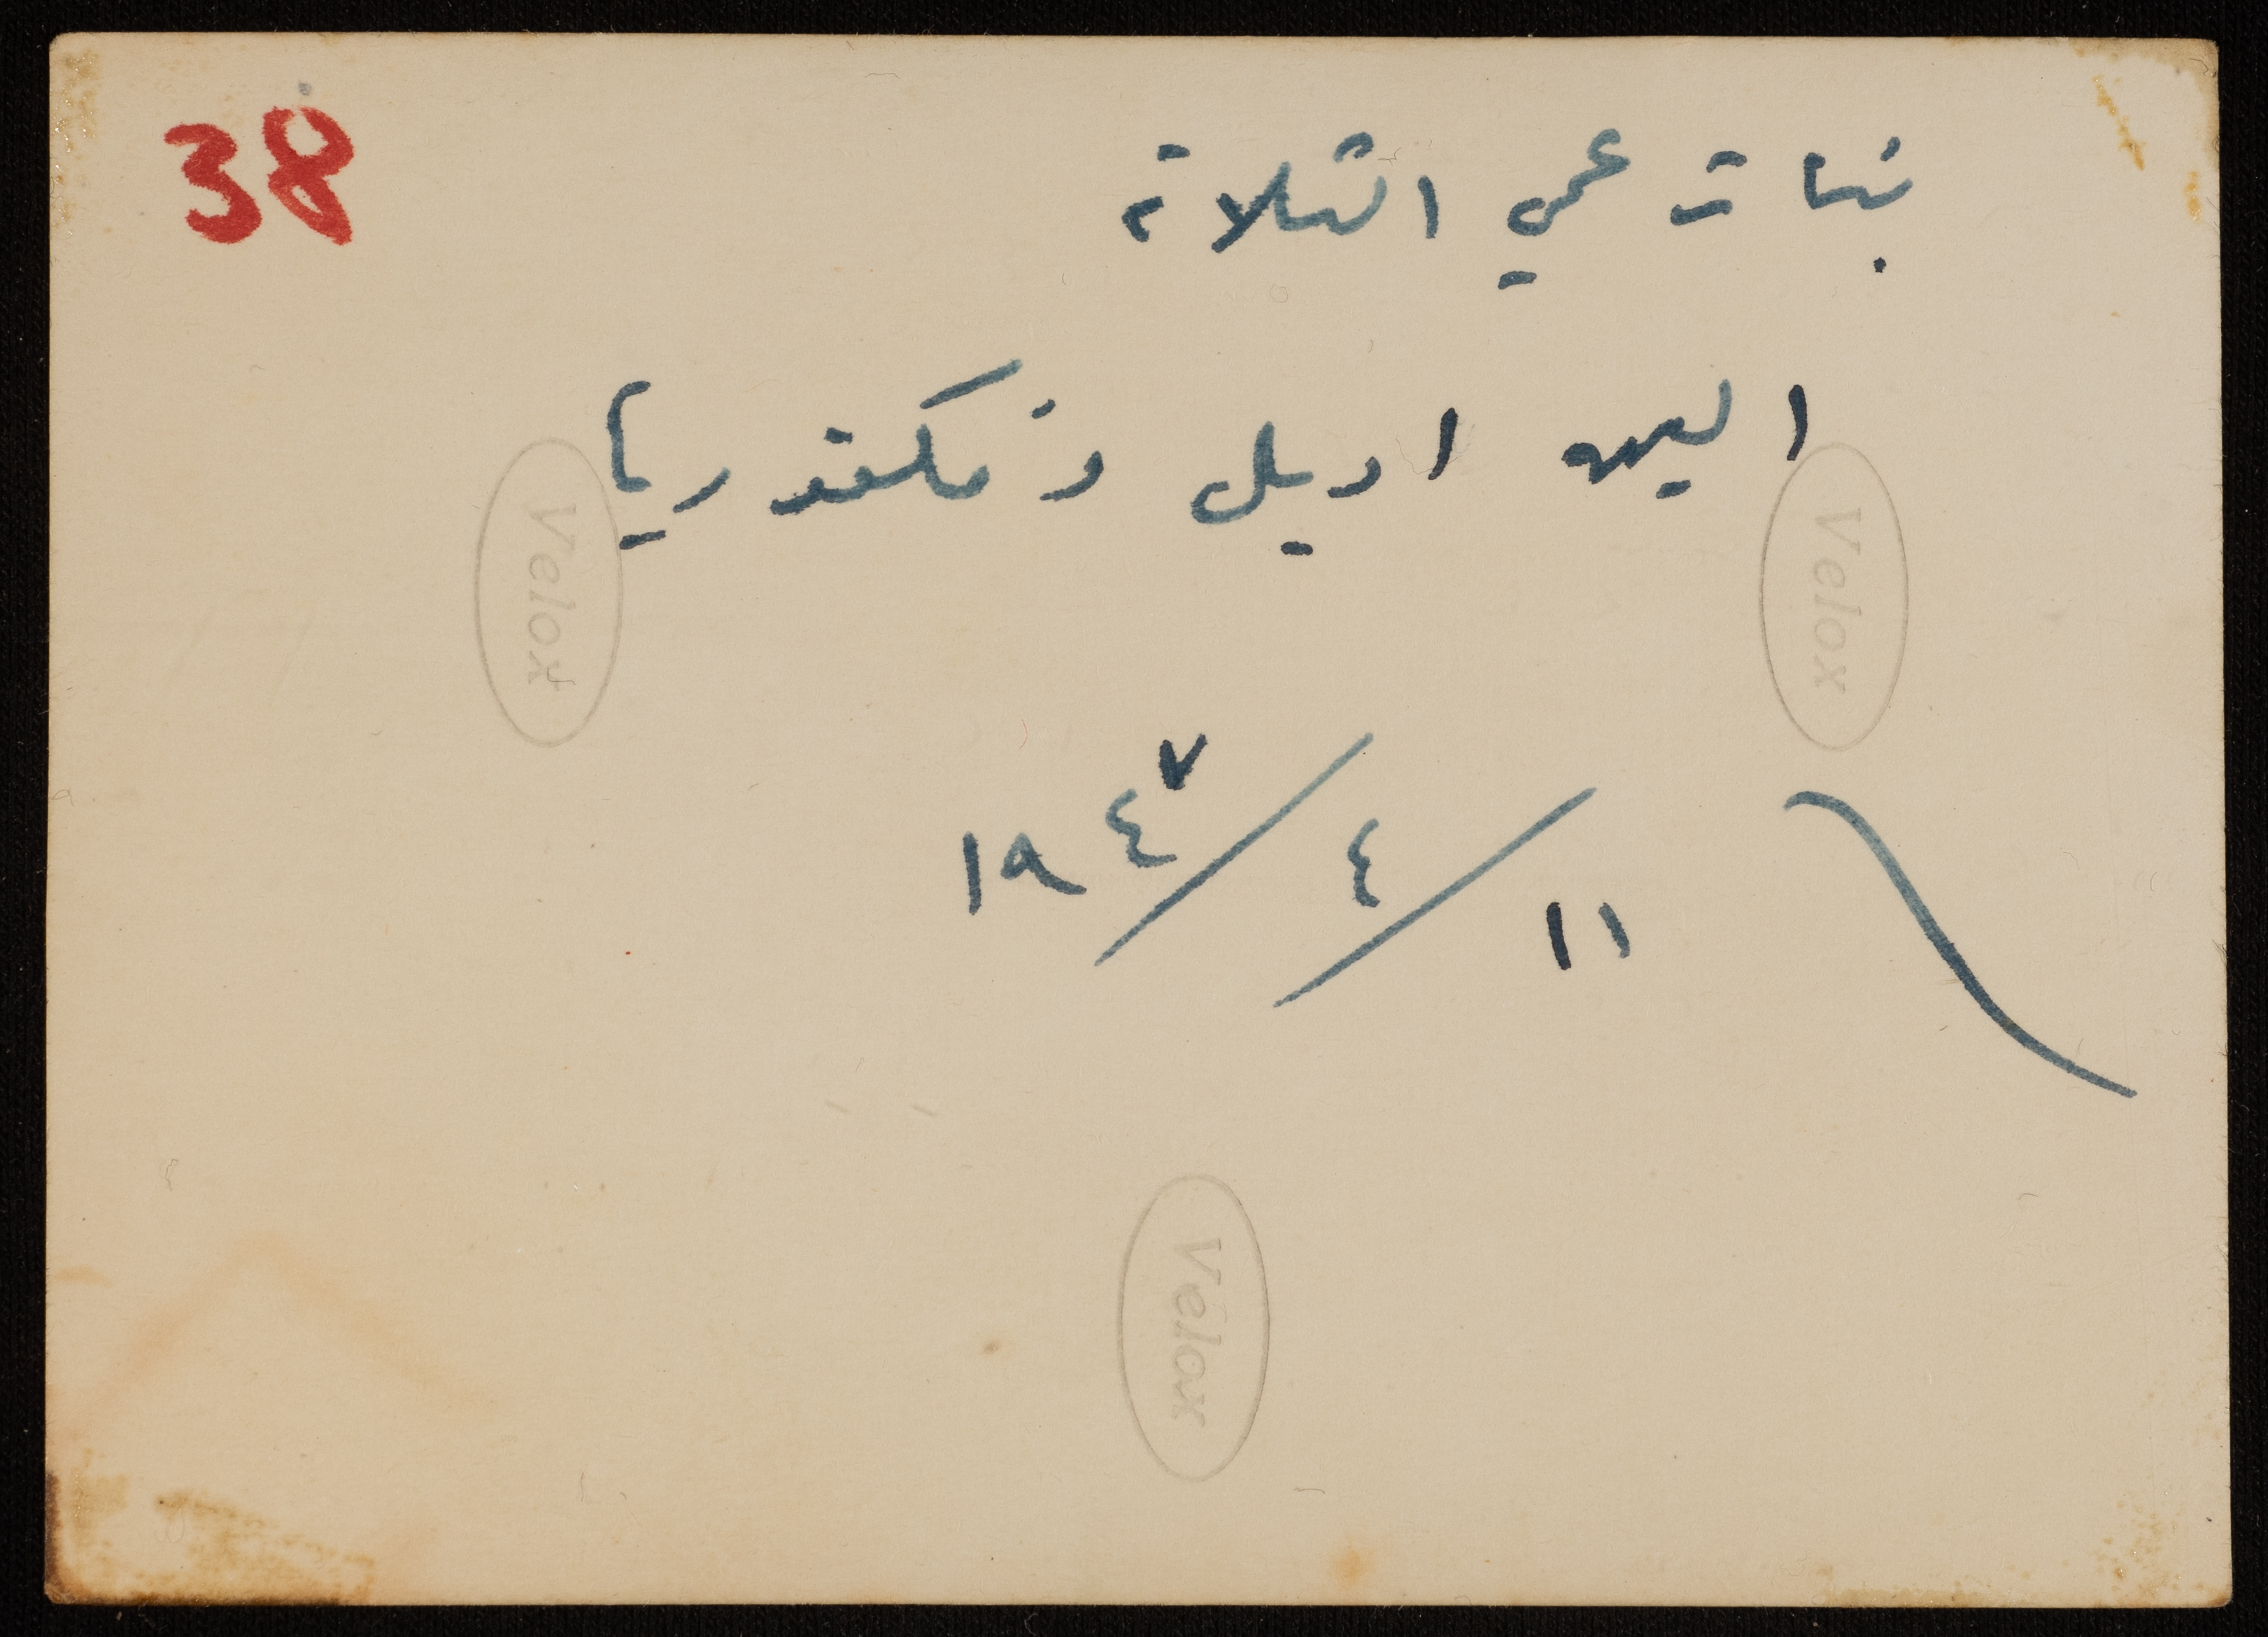 38
بنات عمي الثلاثة
اليس اديل وفكتوريا
١١/٤/١٩٤٧
Velox
Velox
Velox